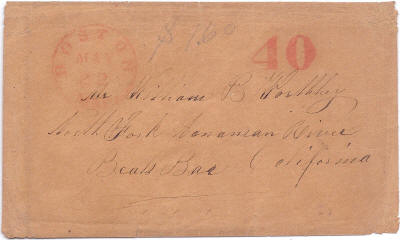 BOSTON
MAY
22
$1.60
40
Mr William B Worthley
South Fork American River
Beals Bar California